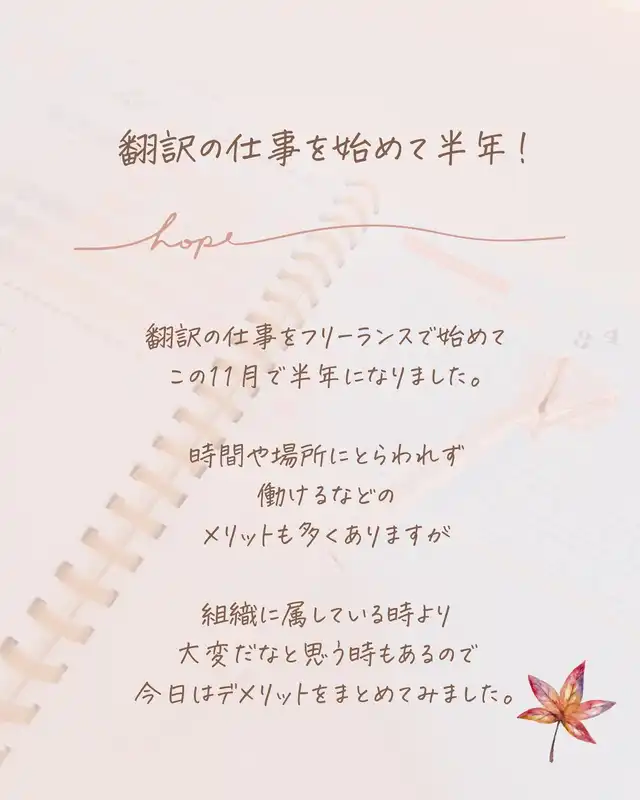 翻訳の仕事を始めて半年！
hope
翻訳の仕事をフリーランスで始めて
この11月で半年になりました。
時間や場所にとらわれず
働けるなどの
メリットも多くありますが
組織に属している時より
大変だなと思う時もあるので
今日はデメリットをまとめてみました。